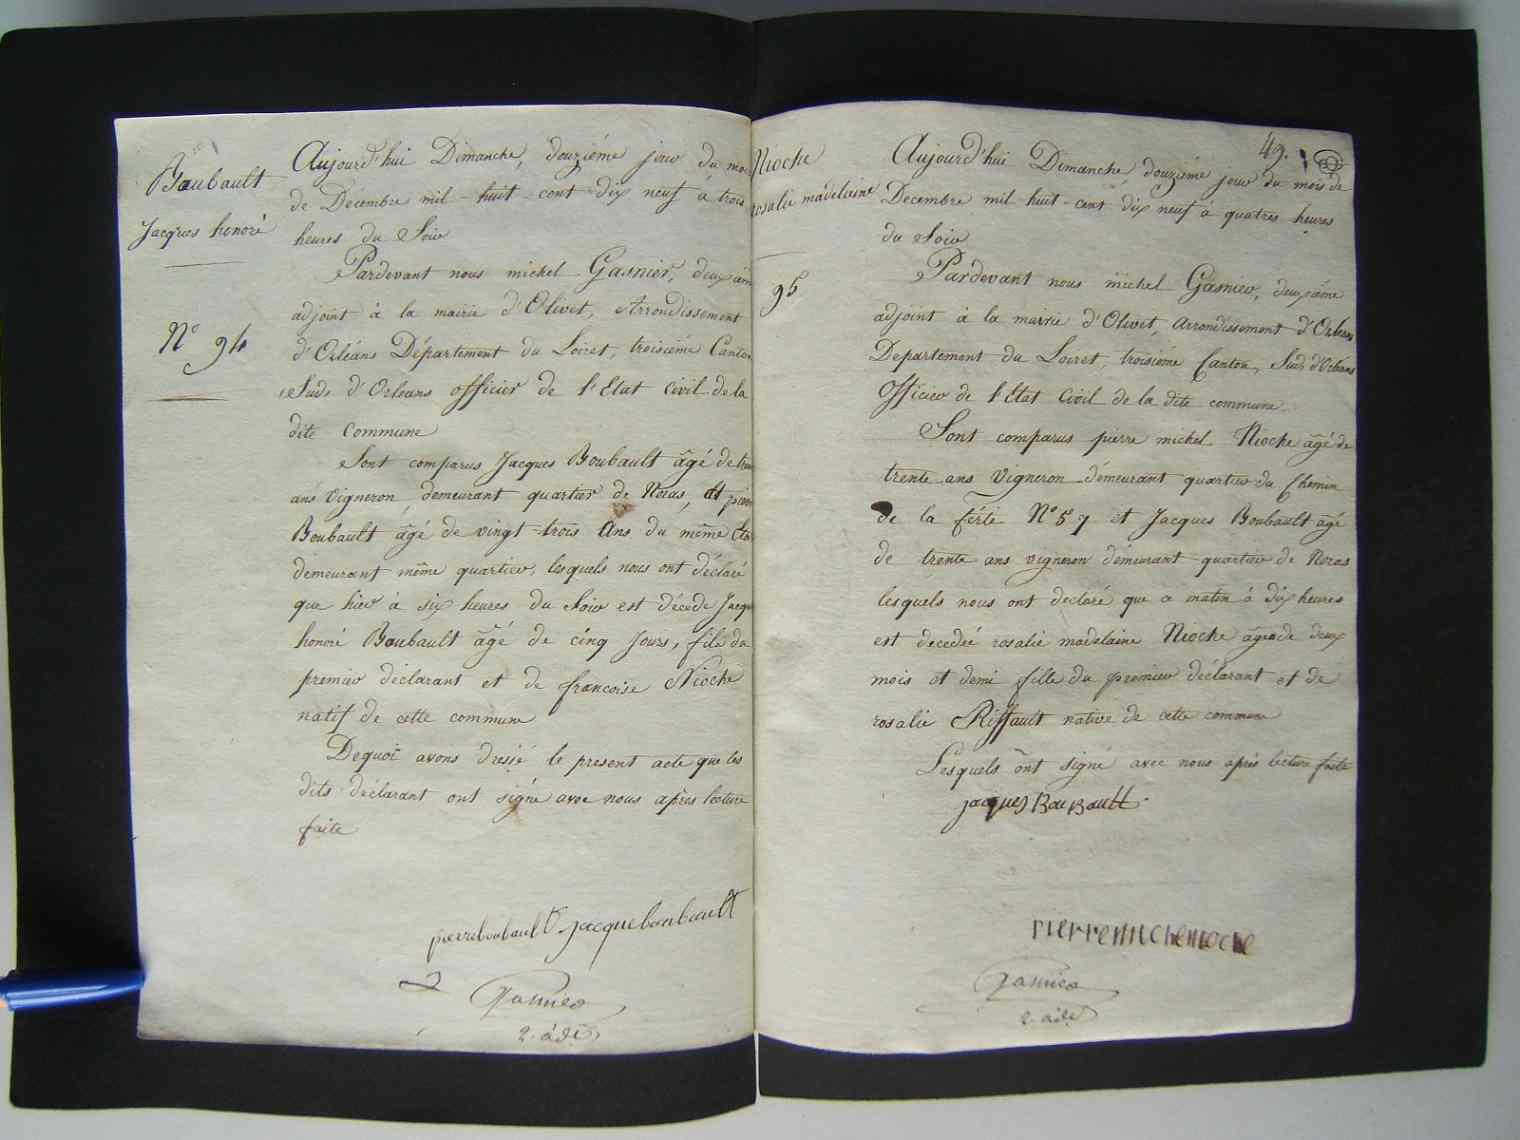 Boubault
Jacques honoré
N° 94
Aujourd'hui Dimanche, douzième jour du mo
de Décembre mil-huit-cent dix neuf à trois
heures du Soir
Pardevant nous michel Gasnier, deuxièm
adjoint à la mairie d'Olivet, Arrondissement
d'Orléans Département du Loiret, troisième Canton
Sude d'Orleans officier de l'Etat Civil de la
dite Commune
Sont comparus Jacques Boubault âgé de
ans vigneron, demeurant quartier de Noras, et
Boubault âgé de vingt-trois Ans du même
demeurant même quartier, lesquels nous ont déclaré
que hier à six heures du Soir est décédé Jacqu
honoré Boubault âgé de cinq Jours, fils du
premier déclarant et de francoise Nioche
natif de cette commune
Dequoi avons dressé le present acte que les
dits déclarant ont signé avec nous après lecture
faite
pierreboubault jacqueboubault
Gasnier
2. adj
49.
Nioche
rosalie madelaine
95
Aujourd'hui Dimanche, douzième jour du mois de
Decembre mil-huit-cent dix neuf à quatres heures
du Soir
Pardevant nous michel Gasnier, deuxième
adjoint à la mairie d'Olivet, Arrondissement d'Orleans
Departement du Loiret, troisième Canton, Sude d'Orleans
Officier de l'Etat Civil de la dite commune.
Sont comparus pierre michel Nioche âgé de
trente ans Vigneron démeurant quartier du Chemin
de la férté N° 57 et Jacques Boubault âgé
de trente ans vigneron démeurant quartier de Noras
lesquels nous ont declaré que ce matin à dix heures
est decedée rosalie madelaine Nioche âgée de deux
mois et demi fille du premier déclarant et de
rosalie Riffault native de cette commune
Lesquels ont signé avec nous après lecture faite
jacques BouBault
Pierremichelnioche
Gasnier
2. adj